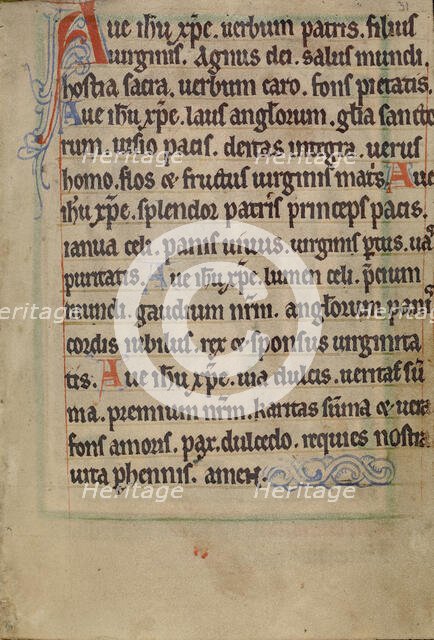 31
Aue ih̄u xp̄e. uerbum patris. filius
uirginis. Agnus dei. salus mundi.
hostia sacra. uerbum caro. fons pietatis.
Aue ih̄u xp̄e. laus angl̄orum. gl̄ia sancto
rum. uisio pacis. deitas integra. uerus
homo. flos & fructus uirginis mat̄s. Aue
ih̄u xp̄e. splendor patris princeps pacis.
ianua celi. panis uiuus. uirginis p̄tus. uas
puritatis. Aue ih̄u xp̄e. lumen celi. p̄cium
mundi. gaudium nr̄m. angl̄orum panis
cordis iubilus. rex & sponsus uirginita
tis. Aue ih̄u xp̄e. uia dulcis. ueritas sū
ma. premium nr̄m. karitas sūma & uera
fons amoris. pax. dulcedo. requies nostra
uita phennis. amen.
Heritage
Heritage
Heritage
Heritage
Heritage
Heritage
Heritage
Heritage